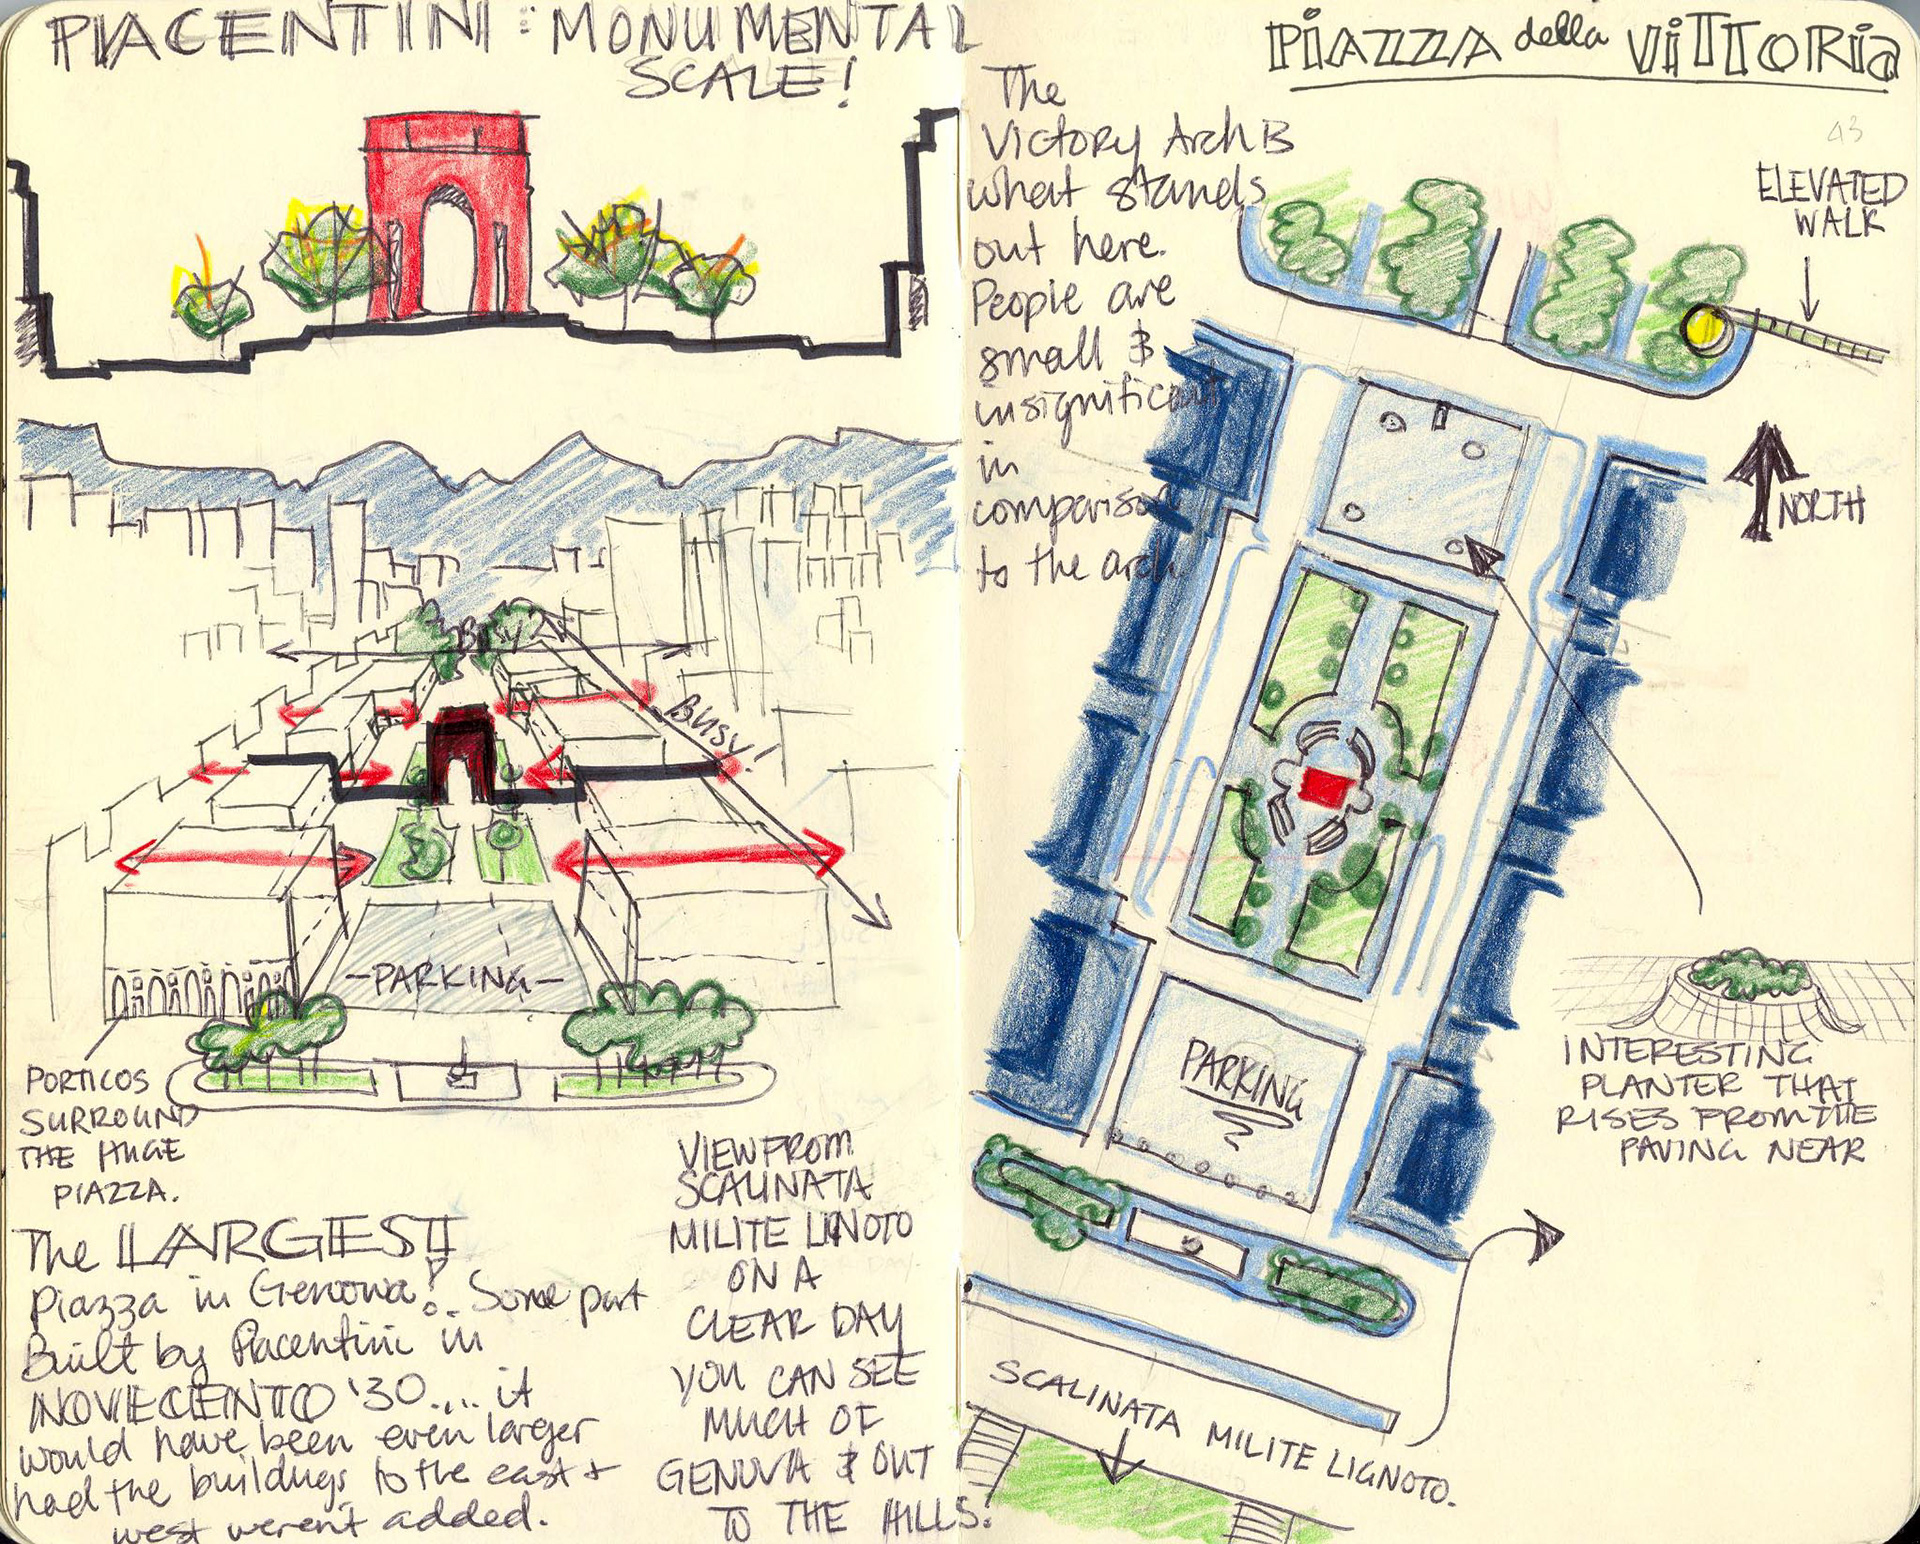 PIACENTINI: MONUMENTAL
SCALE!
Busy
Busy!
-PARKING-
PORTICOS
SURROUND
THE HUGE
PIAZZA.
The LARGEST
piazza in Genova!.. Some part
Built by Piacentini in
NOVECENTO '30.... it
would have been even larger
had the buildings to the east +
west weren't added.
VIEW FROM
SCALINATA
MILITE IGNOTO
ON A
CLEAR DAY
YOU CAN SEE
MUCH OF
GENOVA & OUT
TO THE HILLS.
PIAZZA della VITTORIA
43
The
Victory Arch is
what stands
out here.
People are
small &
insignificant
in
comparison
to the arch
ELEVATED
WALK
NORTH
PARKING
INTERESTING
PLANTER THAT
RISES FROM THE
PAVING NEAR
SCALINATA MILITE LIGNOTO.